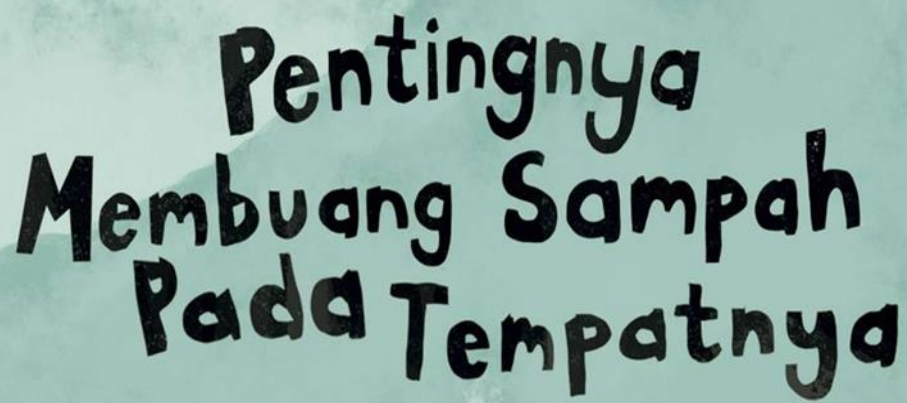 Pentingnya
Membuang Sampah
Pada Tempatnya